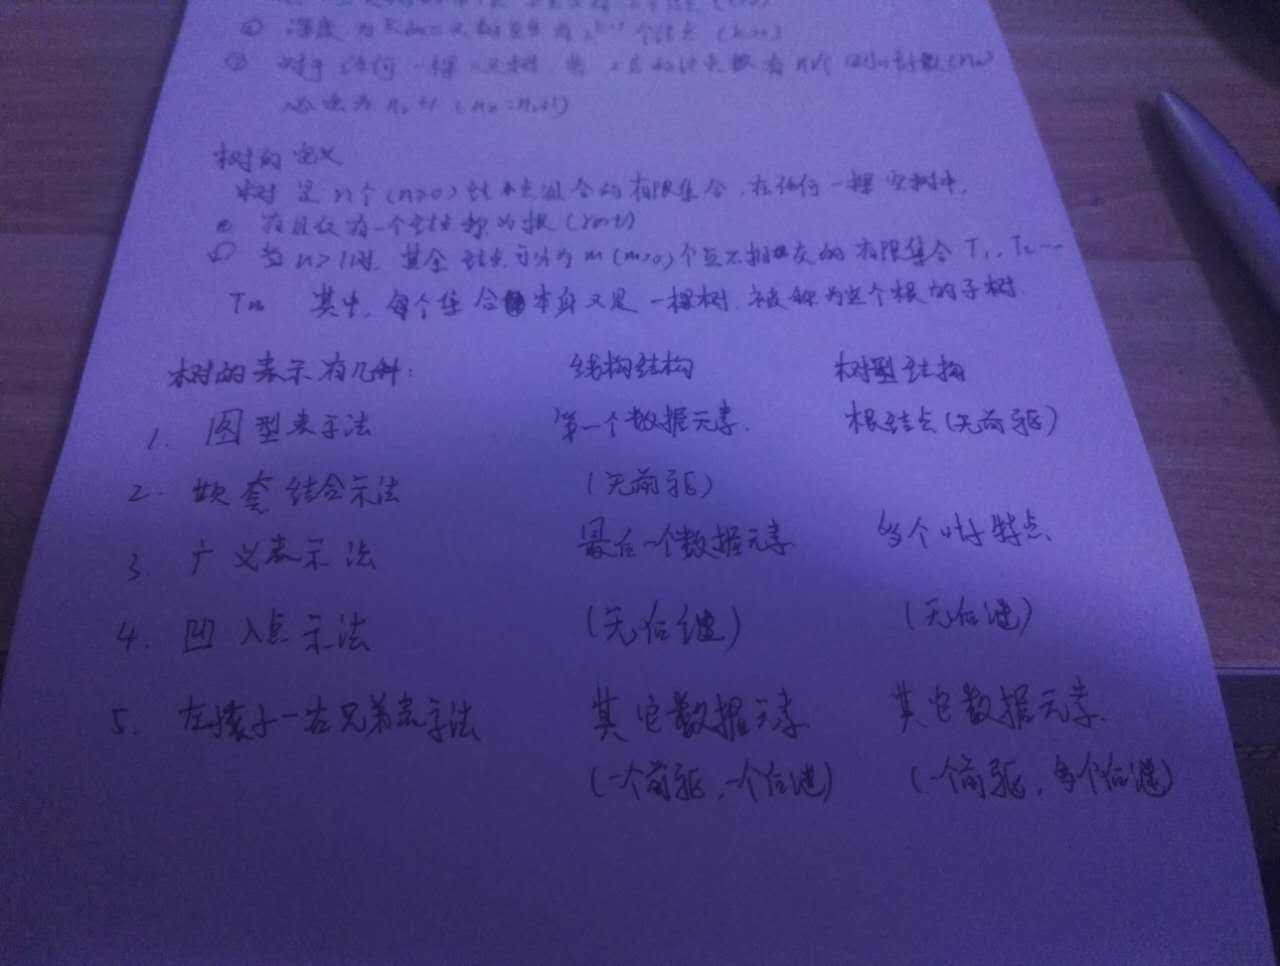 ② 深度为k的二叉树至多有 个结点 (k>0)
③ 对于任何一棵二叉树,
树的定义
树是n个(n≥0)结点组合的有限集合,在任何一棵空树中,
有且仅有一个结点称为根(root)
当n>1时,其余结点可分为m(m>0)个互不相交的有限集合T₁,T₂…
Tm 其中,每个集合本身又是一棵树,被称为这个根的子树.
树的表示有几种: 线构结构 树型结构
1. 图型表示法 第一个数据元素. 根结点(无前驱)
2. 嵌套结合示法 (无前驱)
3. 广义表示法 最后一个数据元素 多个叶子特点
4. 凹入点示法 (无后继) (无后继)
5. 左孩子一右兄弟表示法 其它数据元素 其它数据元素.
(一个前驱,一个后继) (一个前驱,多个后继)